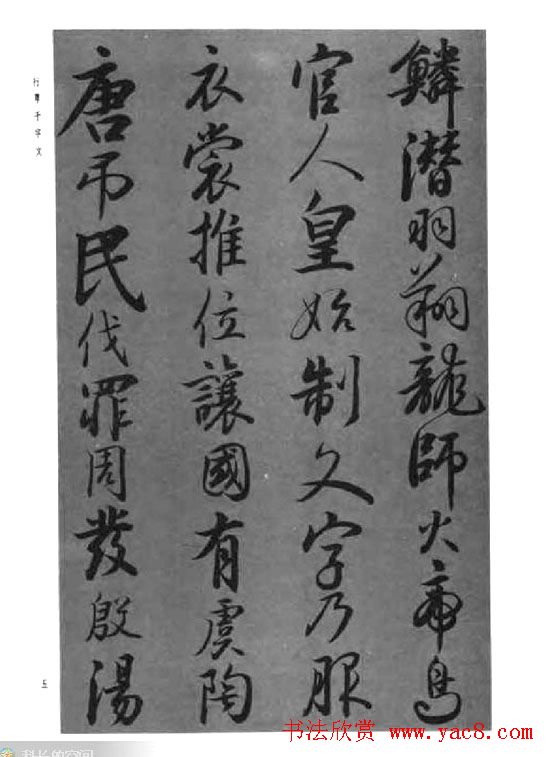 鱗潛羽翔龍師火帝鳥
官人皇始制文字乃服
衣裳推位讓國有虞陶
唐弔民伐罪周發殷湯
行草千字文
五
书法欣赏
www.yac8.com
科长的空间